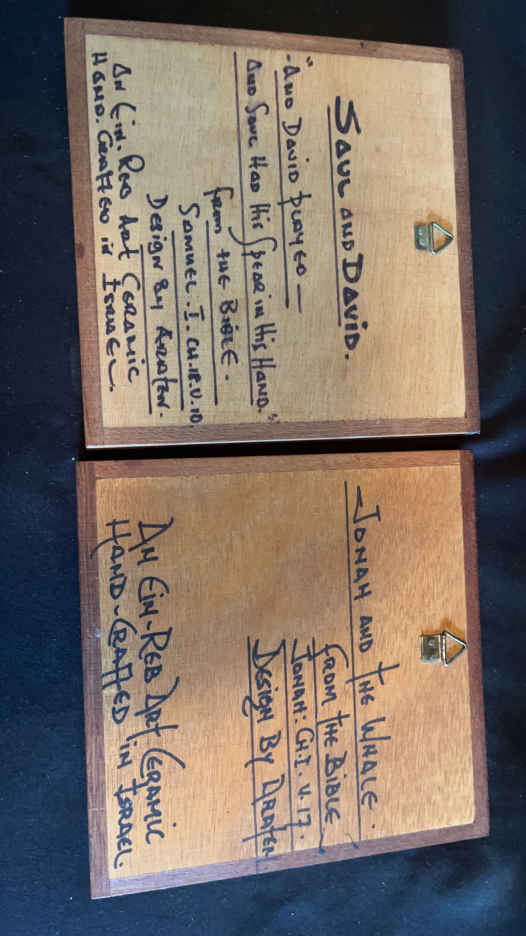 SAUL AND DAVID.
"-AND DAVID PLAYED —
AND SAUL HAD HIS SPEAR IN HIS HAND."
FROM THE BIBLE.
SAMUEL. I. CH.18.V.10.
DESIGN BY ARATEN.
AN EIN-REB ART CERAMIC
HAND-CRAFTED IN ISRAEL.
JONAH AND THE WHALE.
FROM THE BIBLE
JONAH: CH.I. V.17.
DESIGN BY ARATEN
AN EIN-REB ART CERAMIC
HAND-CRAFTED IN ISRAEL.